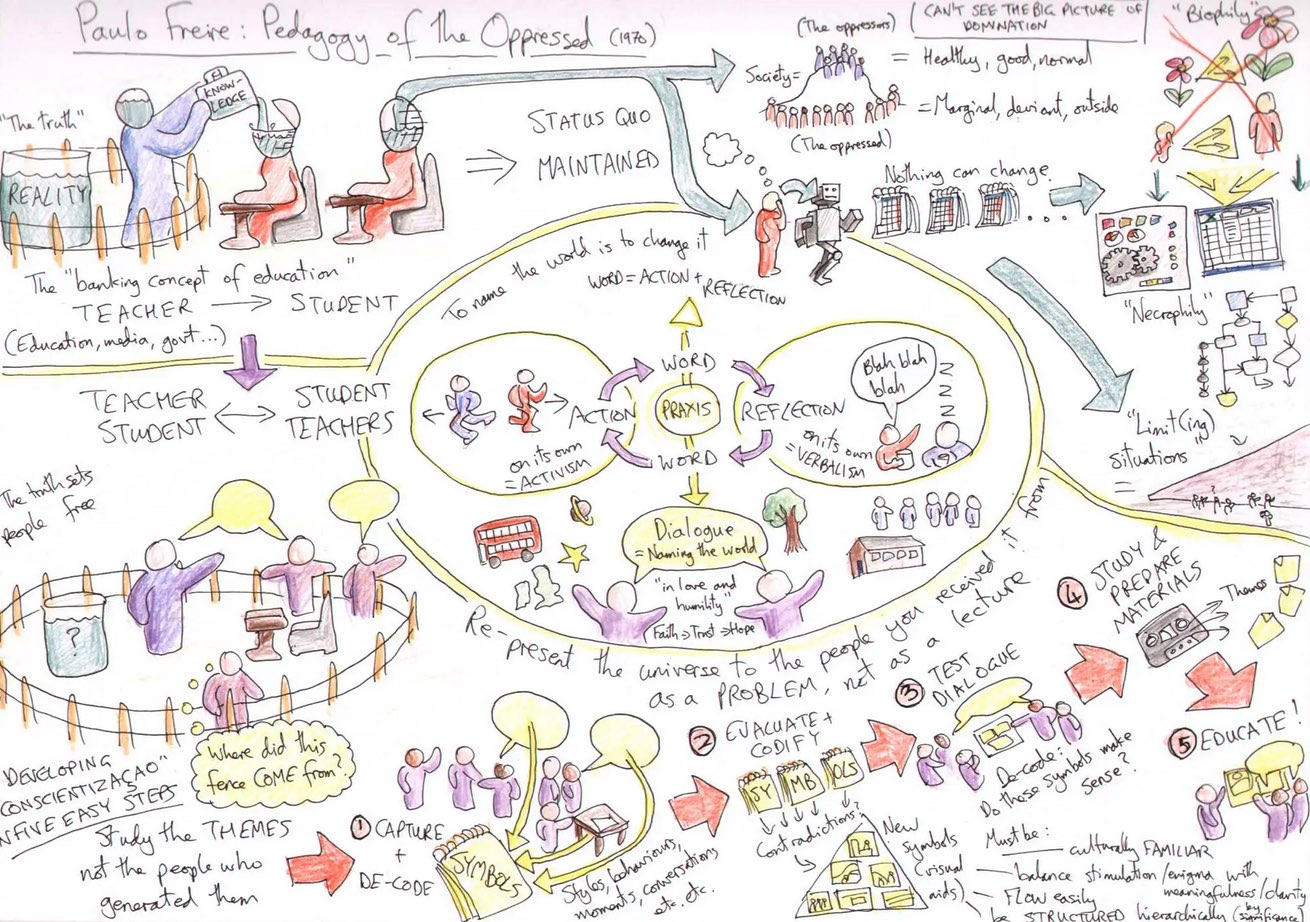 Paulo Freire: Pedagogy of the Oppressed (1970)
"The truth"
REALITY
KNOW-
LEDGE
The "banking concept of education"
TEACHER → STUDENT
(Education, media, govt...)
⇒ STATUS QUO
MAINTAINED
(The oppressors)
Society=
= Healthy, good, normal
= Marginal, deviant, outside
(The oppressed)
CAN'T SEE THE BIG PICTURE OF
DOMINATION
"Biophily"
Nothing can change.
...
"Necrophily"
"Limit(ing)
situations"
=
TEACHER
STUDENT
↔ STUDENT
TEACHERS
The truth sets
people free
?
Where did this
fence COME from?
To name the world is to change it
WORD = ACTION + REFLECTION
WORD
ACTION
PRAXIS
REFLECTION
WORD
on its own
= ACTIVISM
on its own
= VERBALISM
Blah blah
blah
Z
Z
Z
Z
Dialogue
= Naming the world
"in love and
humility"
Faith → Trust → Hope
Re-present the universe to the people you received it from
as a PROBLEM, not as a lecture
"DEVELOPING
CONSCIENTIZAÇAO"
IN FIVE EASY STEPS
Study the THEMES
not the people who
generated them
1 CAPTURE
+
DE-CODE
SYMBOLS
Styles, behaviours,
moments, conversations
etc. etc.
2 EVALUATE +
CODIFY
SY MB OLS
Contradictions?
New
symbols
(visual
aids)
3 TEST
DIALOGUE
De-code:
Do these symbols make
sense?
4 STUDY &
PREPARE
MATERIALS
Themes
5 EDUCATE!
Must be:
culturally FAMILIAR
balance stimulation/enigma with
meaningfulness/clarity
Flow easily
be STRUCTURED hierarchically (by
significance)